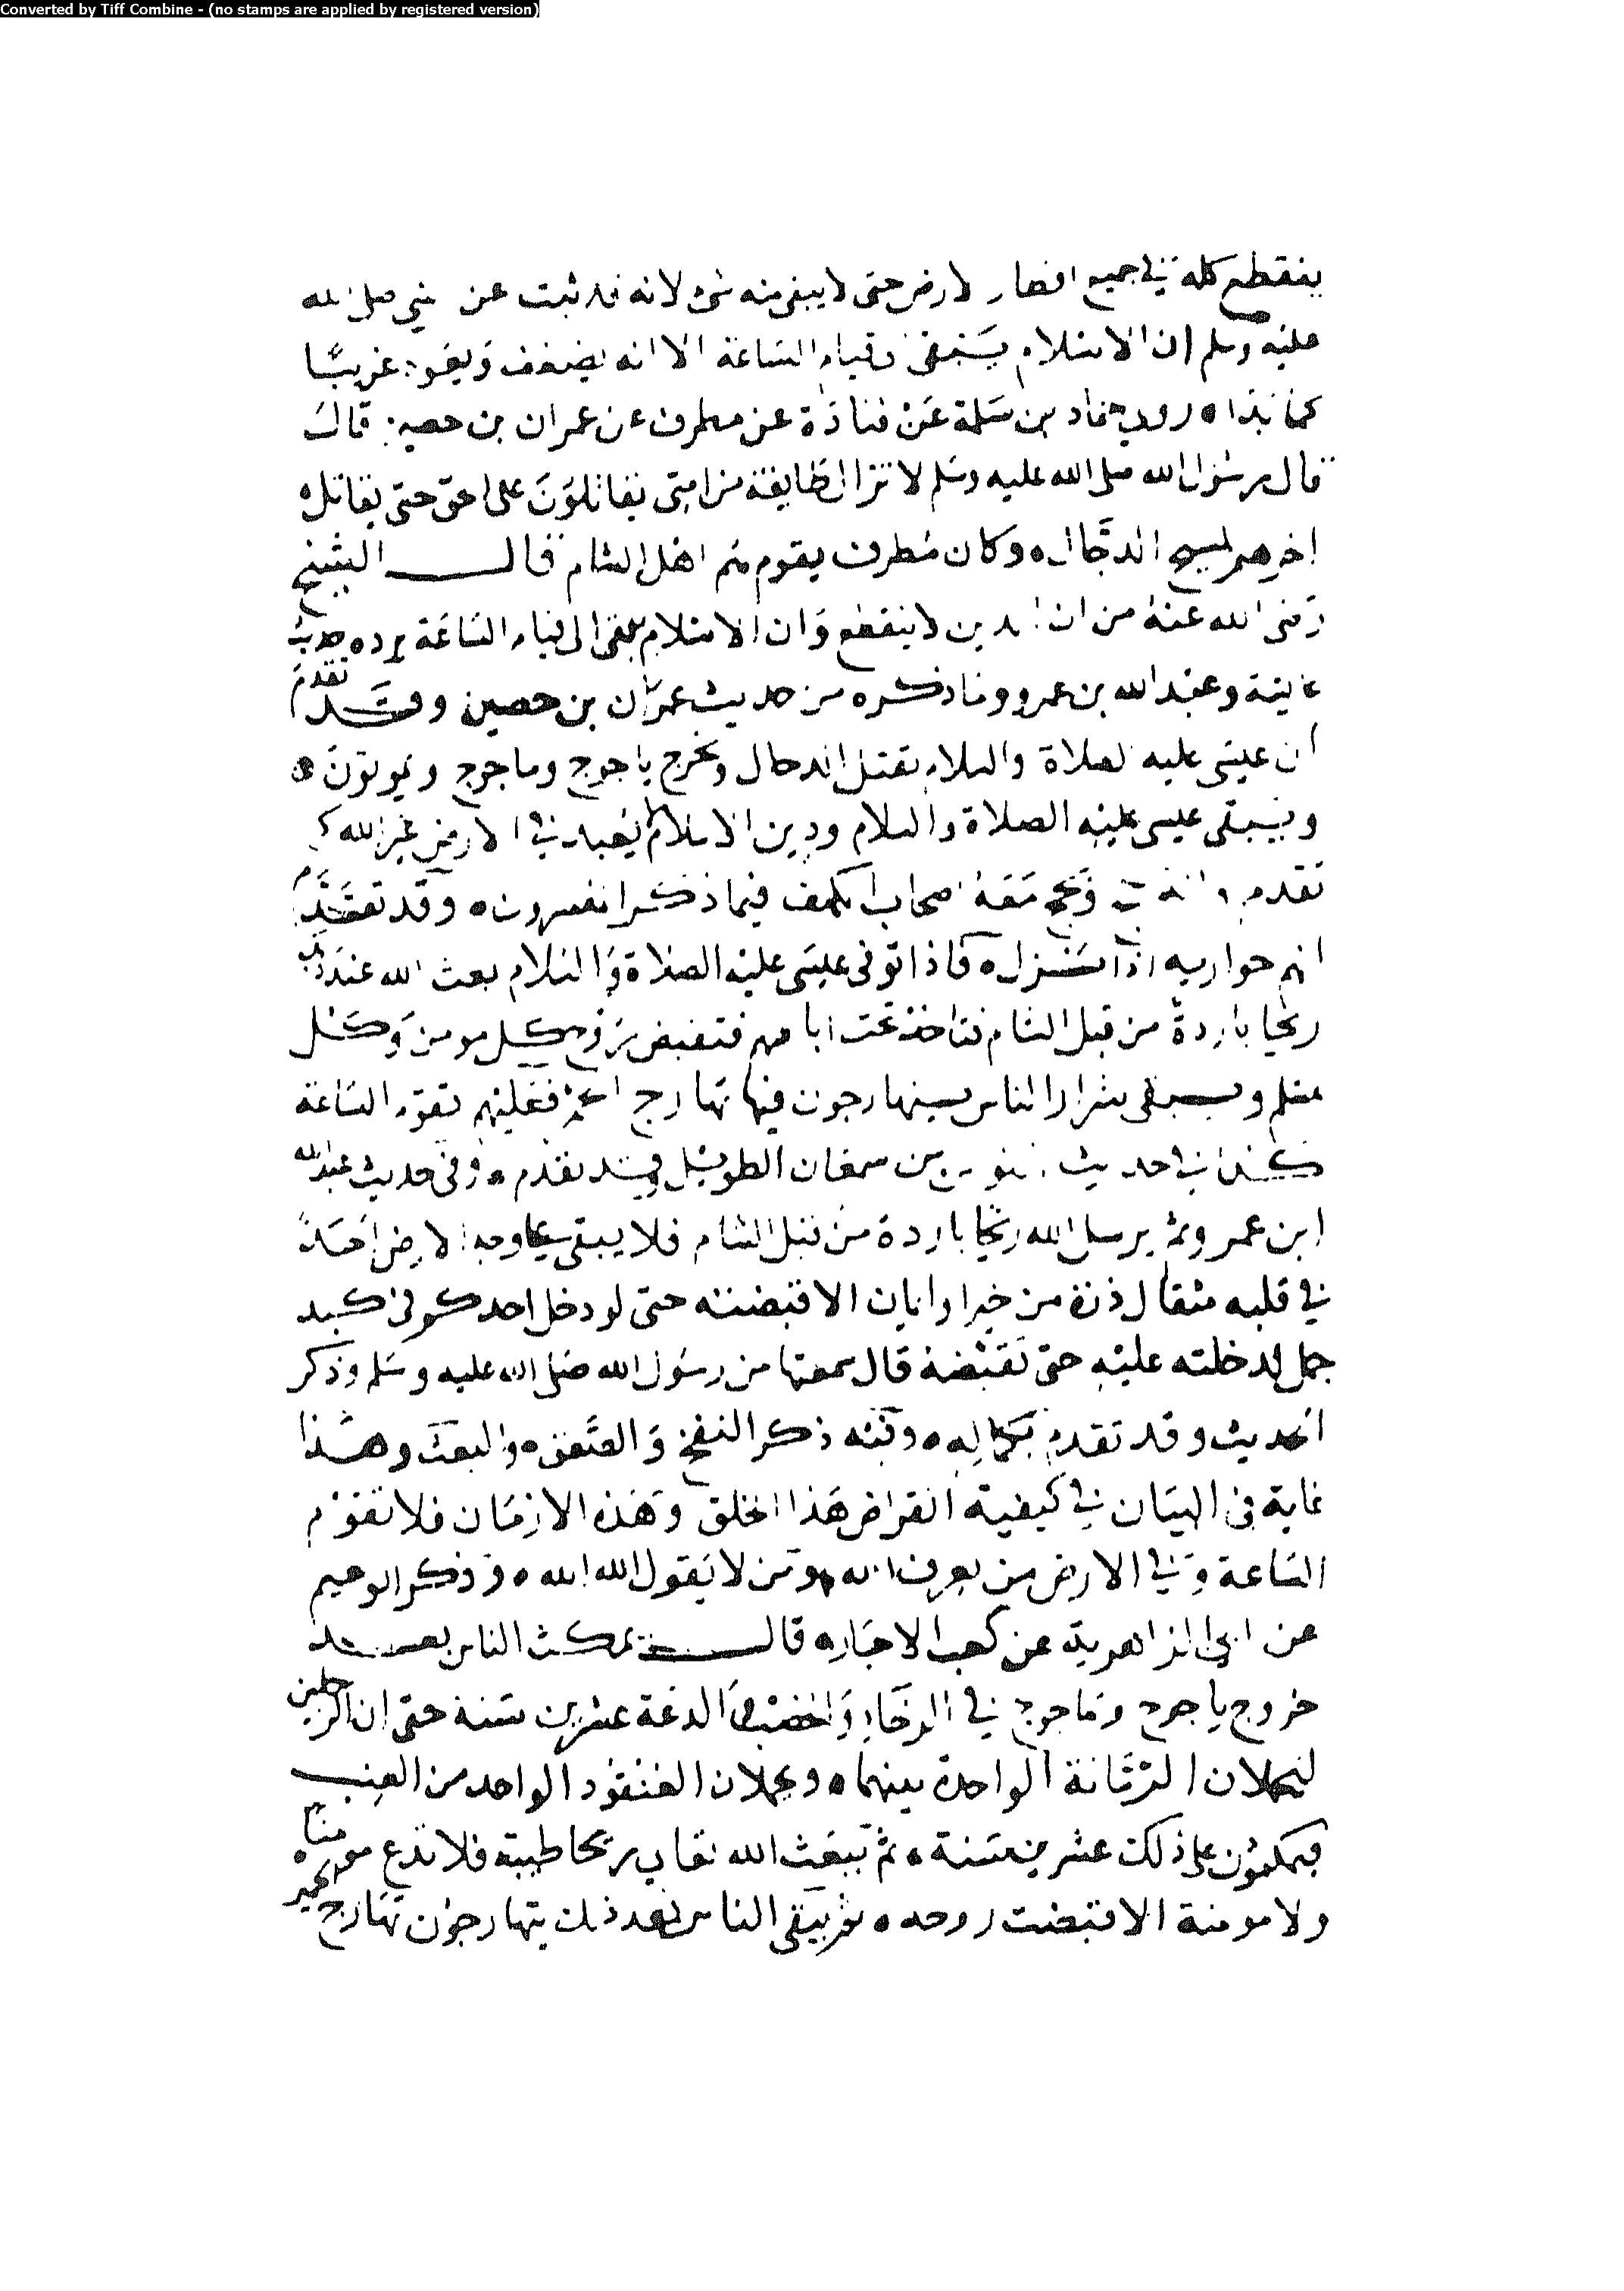 Converted by Tiff Combine - (no stamps are applied by registered version)
ينقطع كله في جميع اقطار الارض حتى لا يبقى منه شئ لانه قد ثبت عن النبي صلى الله
عليه وسلم ان الاسلام يبقى الى قيام الساعة الا انه يضعف ويعود غريبا
كما بدا ه روى حماد بن سلمة عن قتادة عن مطرف عن عمران بن حصين قال
قال رسول الله صلى الله عليه وسلم لا تزال طايفة من امتي يقاتلون على الحق حتى يقاتل
اخرهم المسيح الدجال ه وكان مطرف يقوم هم اهل الشام قال الشيخ
رضى الله عنه من ان الدين لا ينقطع وان الاسلام يبقى الى قيام الساعة يرده حديث
عايشة وعبد الله بن عمرو وما ذكره من حديث عمران بن حصين وقد تقدم
ان عيسى عليه الصلاة والسلام يقتل الدجال ويخرج ياجوج وماجوج ويموتون ه
ويبقى عيسى عليه الصلاة والسلام ودين الاسلام لا يعبد في الارض غير الله كما
تقدم وانه يحج ويحج معه اصحاب الكهف فيما ذكر المفسرون ه وقد تقدم
انهم حواريه اذا نزل ه فاذا توفى عيسى عليه الصلاة والسلام بعث الله عند ذلك
ريحا باردة من قبل الشام فتاخذ تحت اباطهم فتقبض روح كل مومن وكل
مسلم ويبقى شرار الناس يتهارجون فيها تهارج الحمر فعليهم تقوم الساعة
كذا في حديث النواس بن سمعان الطويل وقد تقدم ه وفى حديث عبد الله
ابن عمرو ثم يرسل الله ريحا باردة من قبل الشام فلا يبقى على وجه الارض احد
في قلبه مثقال ذرة من خير او ايمان الا قبضته حتى لو دخل احدكم فى كبد
جبل لدخلته عليه حتى تقبضه قال سمعتها من رسول الله صلى الله عليه وسلم وذكر
الحديث وقد تقدم بكماله ه وفيه ذكر النفخ والصعق ه والبعث وهذا
غاية فى البيان في كيفية انقراض هذا الخلق وهذه الازمان فلا تقوم
الساعة وفي الارض من يعرف الله ولا من يقول الله الله ه وذكر ابو نعيم
عن ابي الزاهرية عن كعب الاحبار ه قال يمكث الناس بعد
خروج ياجوج وماجوج في الرخاء والخصب والدعة عشرين سنة حتى ان الرجلين
ليحملان الرمانة الواحدة بينهما ه ويحملان العنقود الواحد من العنب
فيمكثون على ذلك عشرين سنة ه ثم يبعث الله تعالى ريحا طيبة فلا تدع مومنا ه
ولا مومنة الا قبضت روحه ه ثم يبقى الناس بعد ذلك يتهارجون تهارج الحمير